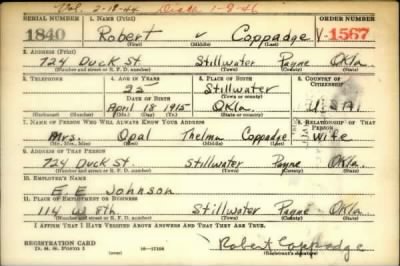 Vol. 2-18-44 Death 1-9-46
SERIAL NUMBER 1. NAME (Print) ORDER NUMBER
1840 Robert Coppadge V-1567
(First) (Middle) (Last)
2. ADDRESS (Print)
724 Duck St. Stillwater Payne Okla.
(Number and street or R. F. D. number) (Town) (County) (State)
3. TELEPHONE 4. AGE IN YEARS 5. PLACE OF BIRTH 6. COUNTRY OF CITIZENSHIP
25 Stillwater
DATE OF BIRTH (Town or county)
April 18 1915 Okla. U.S.A.
(Exchange) (Number) (Mo.) (Day) (Yr.) (State or country)
7. NAME OF PERSON WHO WILL ALWAYS KNOW YOUR ADDRESS 8. RELATIONSHIP OF THAT PERSON
Mrs. Opal Thelma Coppadge Wife
(Mr., Mrs., Miss) (First) (Middle) (Last)
9. ADDRESS OF THAT PERSON
724 Duck St. Stillwater Payne Okla.
(Number and street or R. F. D. number) (Town) (County) (State)
10. EMPLOYER'S NAME
E. E. Johnson
11. PLACE OF EMPLOYMENT OR BUSINESS
114 W 8th Stillwater Payne Okla.
(Number and street or R. F. D. number) (Town) (County) (State)
I AFFIRM THAT I HAVE VERIFIED ABOVE ANSWERS AND THAT THEY ARE TRUE.
REGISTRATION CARD
D. S. S. FORM 1 Robert Coppadge
(Registrant's signature)